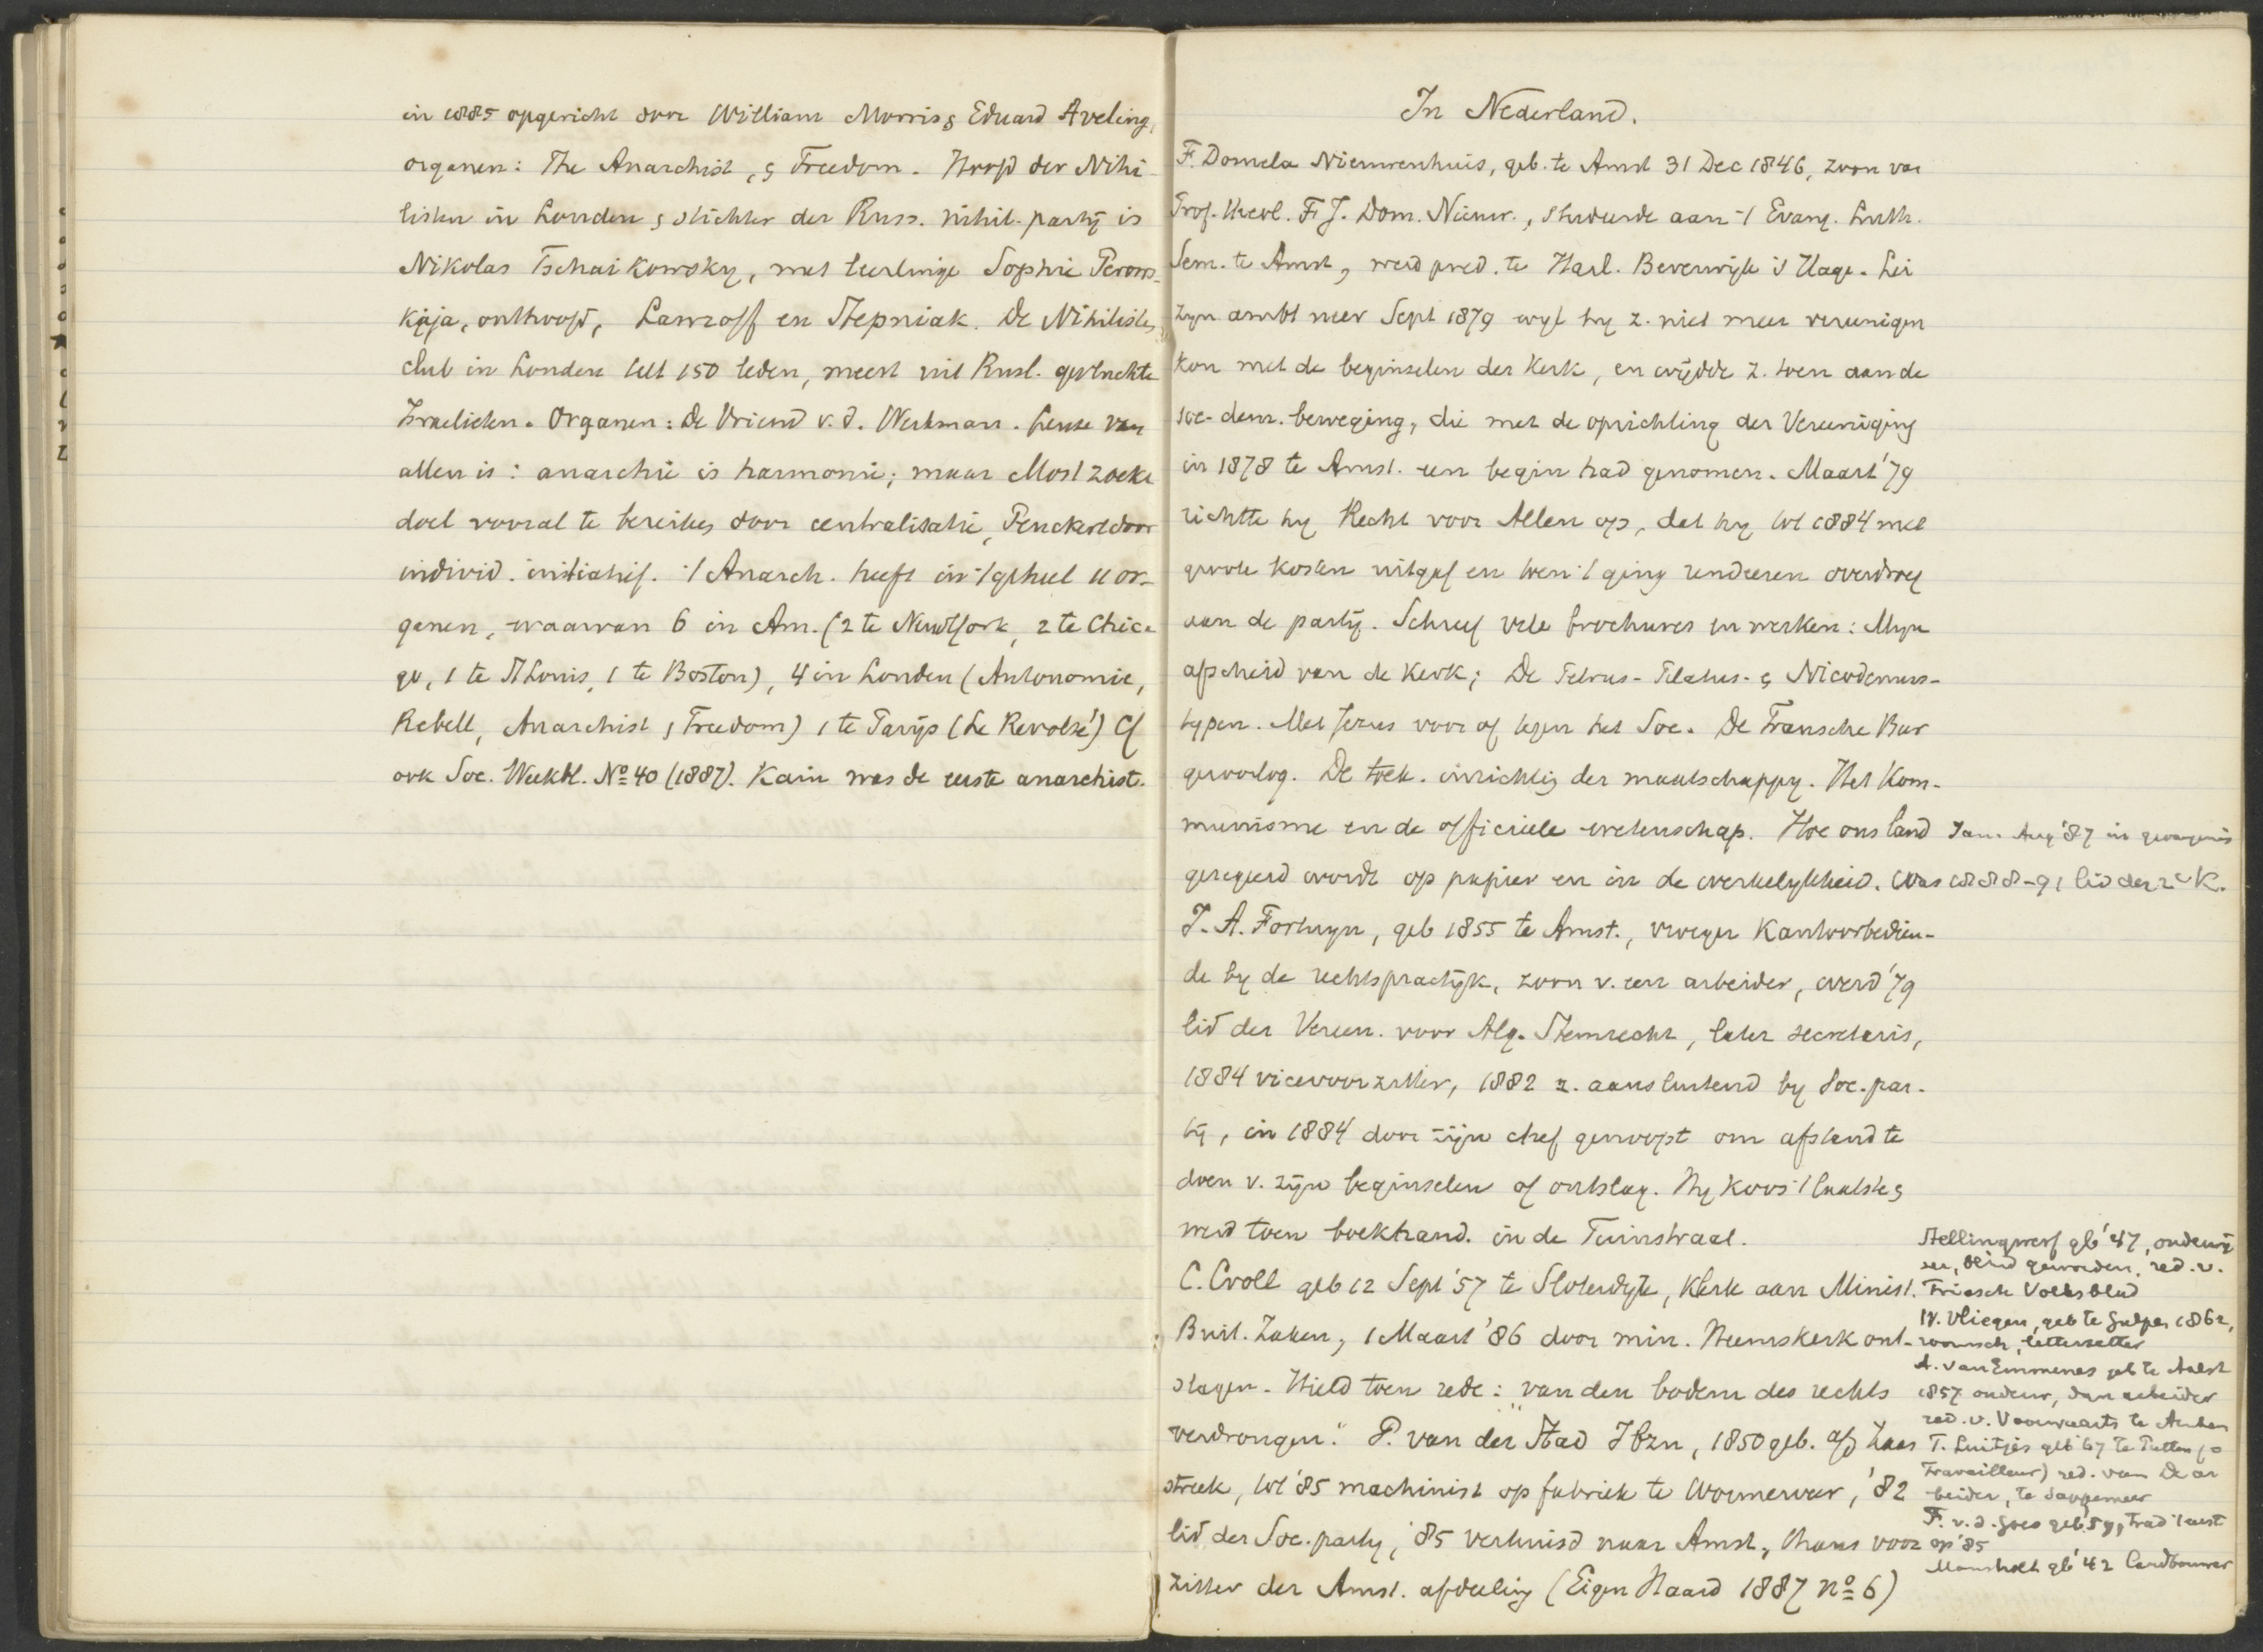 in 1885 opgericht door William Morris & Eduard Aveling,
organen: The Anarchist, & Freedom. Hoofd der Nihi-
listen in Londen & stichter der Russ. nihil. partij is
Nikolas Tschaikowsky, met leerlinge Sophie Perows-
kaja, onthoofd, Lawroff en Stepniak. De Nihilisten
club in Londen telt 150 leden, meest uit Rusl. gevluchte
Israelieten. Organen: De Vriend v. d. Werkman. Leuze van
allen is: anarchie is harmonie; maar Most zoekt
doel vooral te bereiken door centralisatie, Penckert door
individ. initiatief. 't Anarch. heeft in 't geheel 11 or-
ganen, waarvan 6 in Am. (2 te NewYork, 2 te Chica
go, 1 te St Louis, 1 te Boston), 4 in Londen (Autonomie,
Rebell, Anarchist & Freedom) 1 te Parijs (Le Revolté) Cf
ook Soc. Weekbl. No 40 (1887). Kain was de eerste anarchist.
In Nederland.
F. Domela Nieuwenhuis, geb. te Amst 31 Dec 1846, zoon van
Prof. Theol. F. J. Dom. Nieuw., studeerde aan 't Evang. Luth.
Sem. te Amst, werd pred. te Harl. Beverwijk 's Hage. Lei
zyn ambt neer Sept 1879 wyl hy z. niet meer vereenigen
kon met de beginselen der Kerk, en wijdde z. toen aan de
soc-dem. beweging, die met de oprichting der Vereeniging
in 1878 te Amst. een begin had genomen. Maart '79
richtte hy Recht voor Allen op, dat hy tot 1884 met
groote kosten uitgaf en toen 't ging rendeeren overdroeg
aan de partij. Schreef vele brochures en werken: Mijn
afscheid van de kerk; De Petrus- Pilatus- & Nicodemus-
typen. Met Jezus voor of tegen het Soc. De Fransche Bur
geroorlog. De toek. inrichting der maatschappy. Het Kom-
munisme en de officieele wetenschap. Hoe ons land
geregeerd wordt op papier en in de werkelykheid. Was 1888-91 lid der 2e K.
Jan. Aug '87 in gevangenis
J. A. Fortuyn, geb 1855 te Amst., vroeger Kantoorbedien-
de by de rechtspractijk, zoon v. een arbeider, werd '79
lid der Vereen. voor Alg. Stemrecht, later secretaris,
1884 vicevoorzitter, 1882 z. aansluitend by Soc. par-
tij, in 1884 door zijn chef genoopt om afstand te
doen v. zijn beginselen of ontslag. Hy koos 't laatste &
werd toen boekhand. in de Tuinstraat.
C. Croll geb 12 Sept '57 te Sloterdyk, klerk aan Minist.
Buit. Zaken, 1 Maart '86 door min. Heemskerk ont-
slagen. Hield toen rede: „van den bodem des rechts
verdrongen." P. van der Stad Jbzn, 1850 geb. a/d Zaan
streek, tot '85 machinist op fabriek te Wormerveer, '82
lid der Soc. party, '85 verhuisd naar Amst, thans voor
zitter der Amst. afdeeling (Eigen Haard 1887 no 6)
Stellingwerf gb '47, onderwij
zer, blind geworden, red. v.
Friesch Volksblad
W. Vliegen, geb te Gulpen 1862,
roomsch, letterzetter
A. van Emmenes geb te Aalst
1857 onderw, dan arbeider
red. v. Voorwaarts te Arnhem
T. Luitjes geb '67 te Putten (
Travailleur) red. van De ar
beider, te Sappemeer
F. v. d. Goes geb '59, trad 't eerst
op '85
Mansholt gb '42 landbouwer